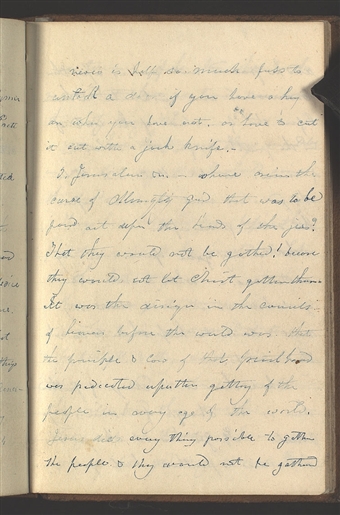 never is half so much fuss to
unlock a door if you have a key
as when you have not. or have to cut
it out with a jack knife.–
O. Jerusalem &c. – where within the
curse of Almighty God that was to be
pourd out upon the heads of the jews?
That they would not be gathed! because
they would not let Christ gather them
It was the design in the councils
of heaven before the world was. that
the principle & law of that priesthood
was predicated upon the gathring of the
people in every age of the world.
Jesus did every thing possible to gather
the people & they would not be gathered